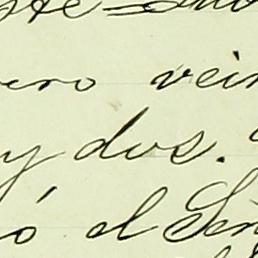 ero vein
y dos.
ó el Señ